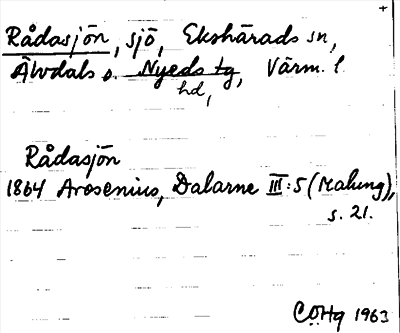 +
Rådasjön, sjö, Ekshärads sn,
Älvdals o. Nyeds tg, Värm. l.
hd,
Rådasjön
1864 Arosenius, Dalarne III:5 (Malung),
s. 21.
CÖHg 1963